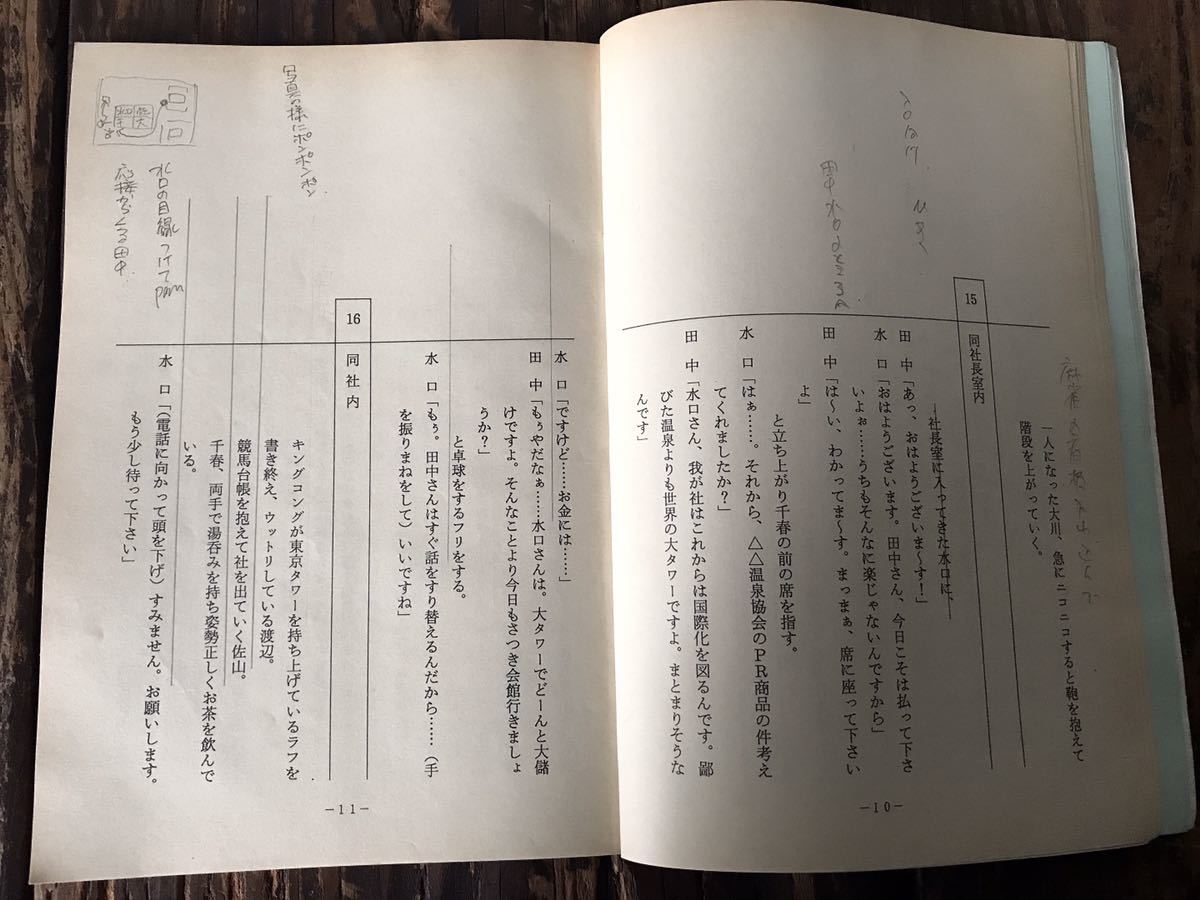 一人になった大川、急にニコニコすると鞄を抱えて
階段を上がっていく。
15
同社長室内
社長室に入ってきた水口に、
田中「あっ、おはようございま〜す！」
水口「おはようございます。田中さん、今日こそは払って下さ
いよぉ……うちもそんなに楽じゃないんですから」
田中「は〜い、わかってま〜す。まっまぁ、席に座って下さい
よ」
と立ち上がり千春の前の席を指す。
水口「はぁ……。それから、△△温泉協会のＰＲ商品の件考え
てくれましたか？」
田中「水口さん、我が社はこれからは国際化を図るんです。鄙
びた温泉よりも世界の大タワーですよ。まとまりそうな
んです」
－10－
水口「ですけど……お金には……」
田中「もぅやだなぁ……水口さんは。大タワーでどーんと大儲
けですよ。そんなことより今日もさつき会館行きましょ
うか？」
と卓球をするフリをする。
水口「もぅ。田中さんはすぐ話をすり替えるんだから……（手
を振りまねをして）いいですね」
16
同社内
キングコングが東京タワーを持ち上げているラフを
書き終え、ウットリしている渡辺。
競馬台帳を抱えて社を出ていく佐山。
千春、両手で湯呑みを持ち姿勢正しくお茶を飲んで
いる。
水口「（電話に向かって頭を下げ）すみません。お願いします。
もう少し待って下さい」
－11－
写真の様にポンポンポン
水口の目線つけてpan
応接からくる田中